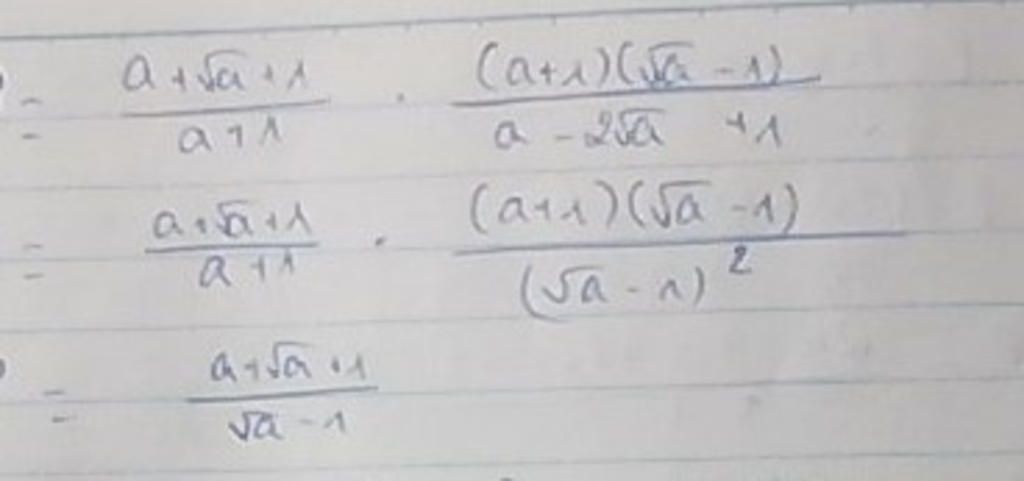 = \frac{a+\sqrt{a}+1}{a+1} \cdot \frac{(a+1)(\sqrt{a}-1)}{a-2\sqrt{a}+1}
= \frac{a+\sqrt{a}+1}{a+1} \cdot \frac{(a+1)(\sqrt{a}-1)}{(\sqrt{a}-1)^2}
= \frac{a+\sqrt{a}+1}{\sqrt{a}-1}